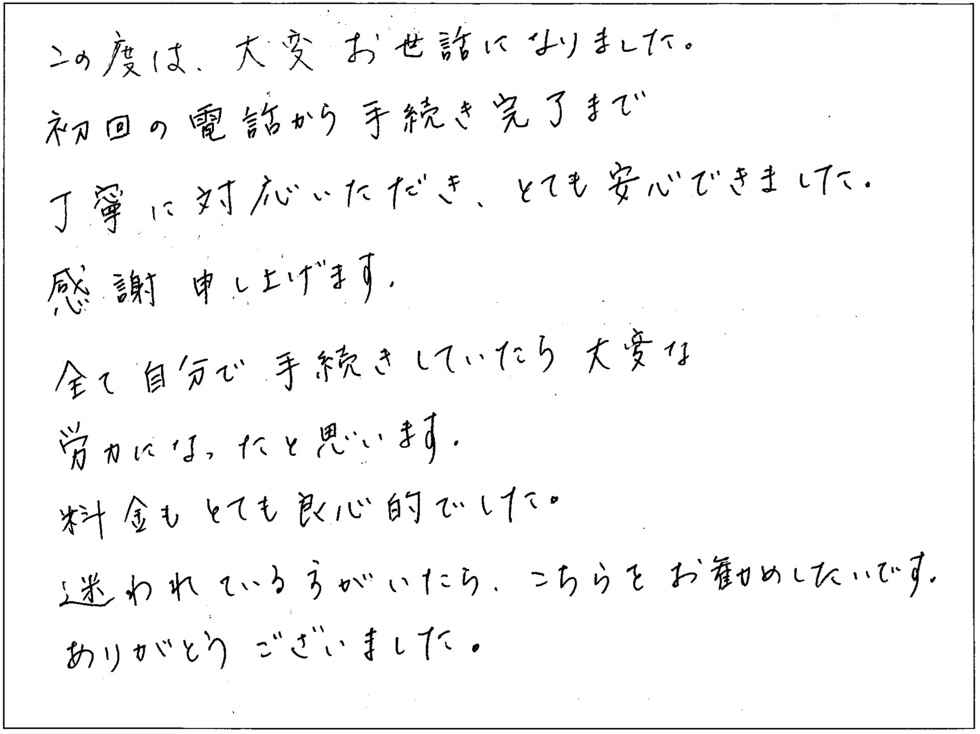 この度は、大変お世話になりました。
初回の電話から手続き完了まで
丁寧に対応いただき、とても安心できました。
感謝申し上げます。
全て自分で手続きしていたら大変な
労力になったと思います。
料金もとても良心的でした。
迷われている方がいたら、こちらをお勧めしたいです。
ありがとうございました。